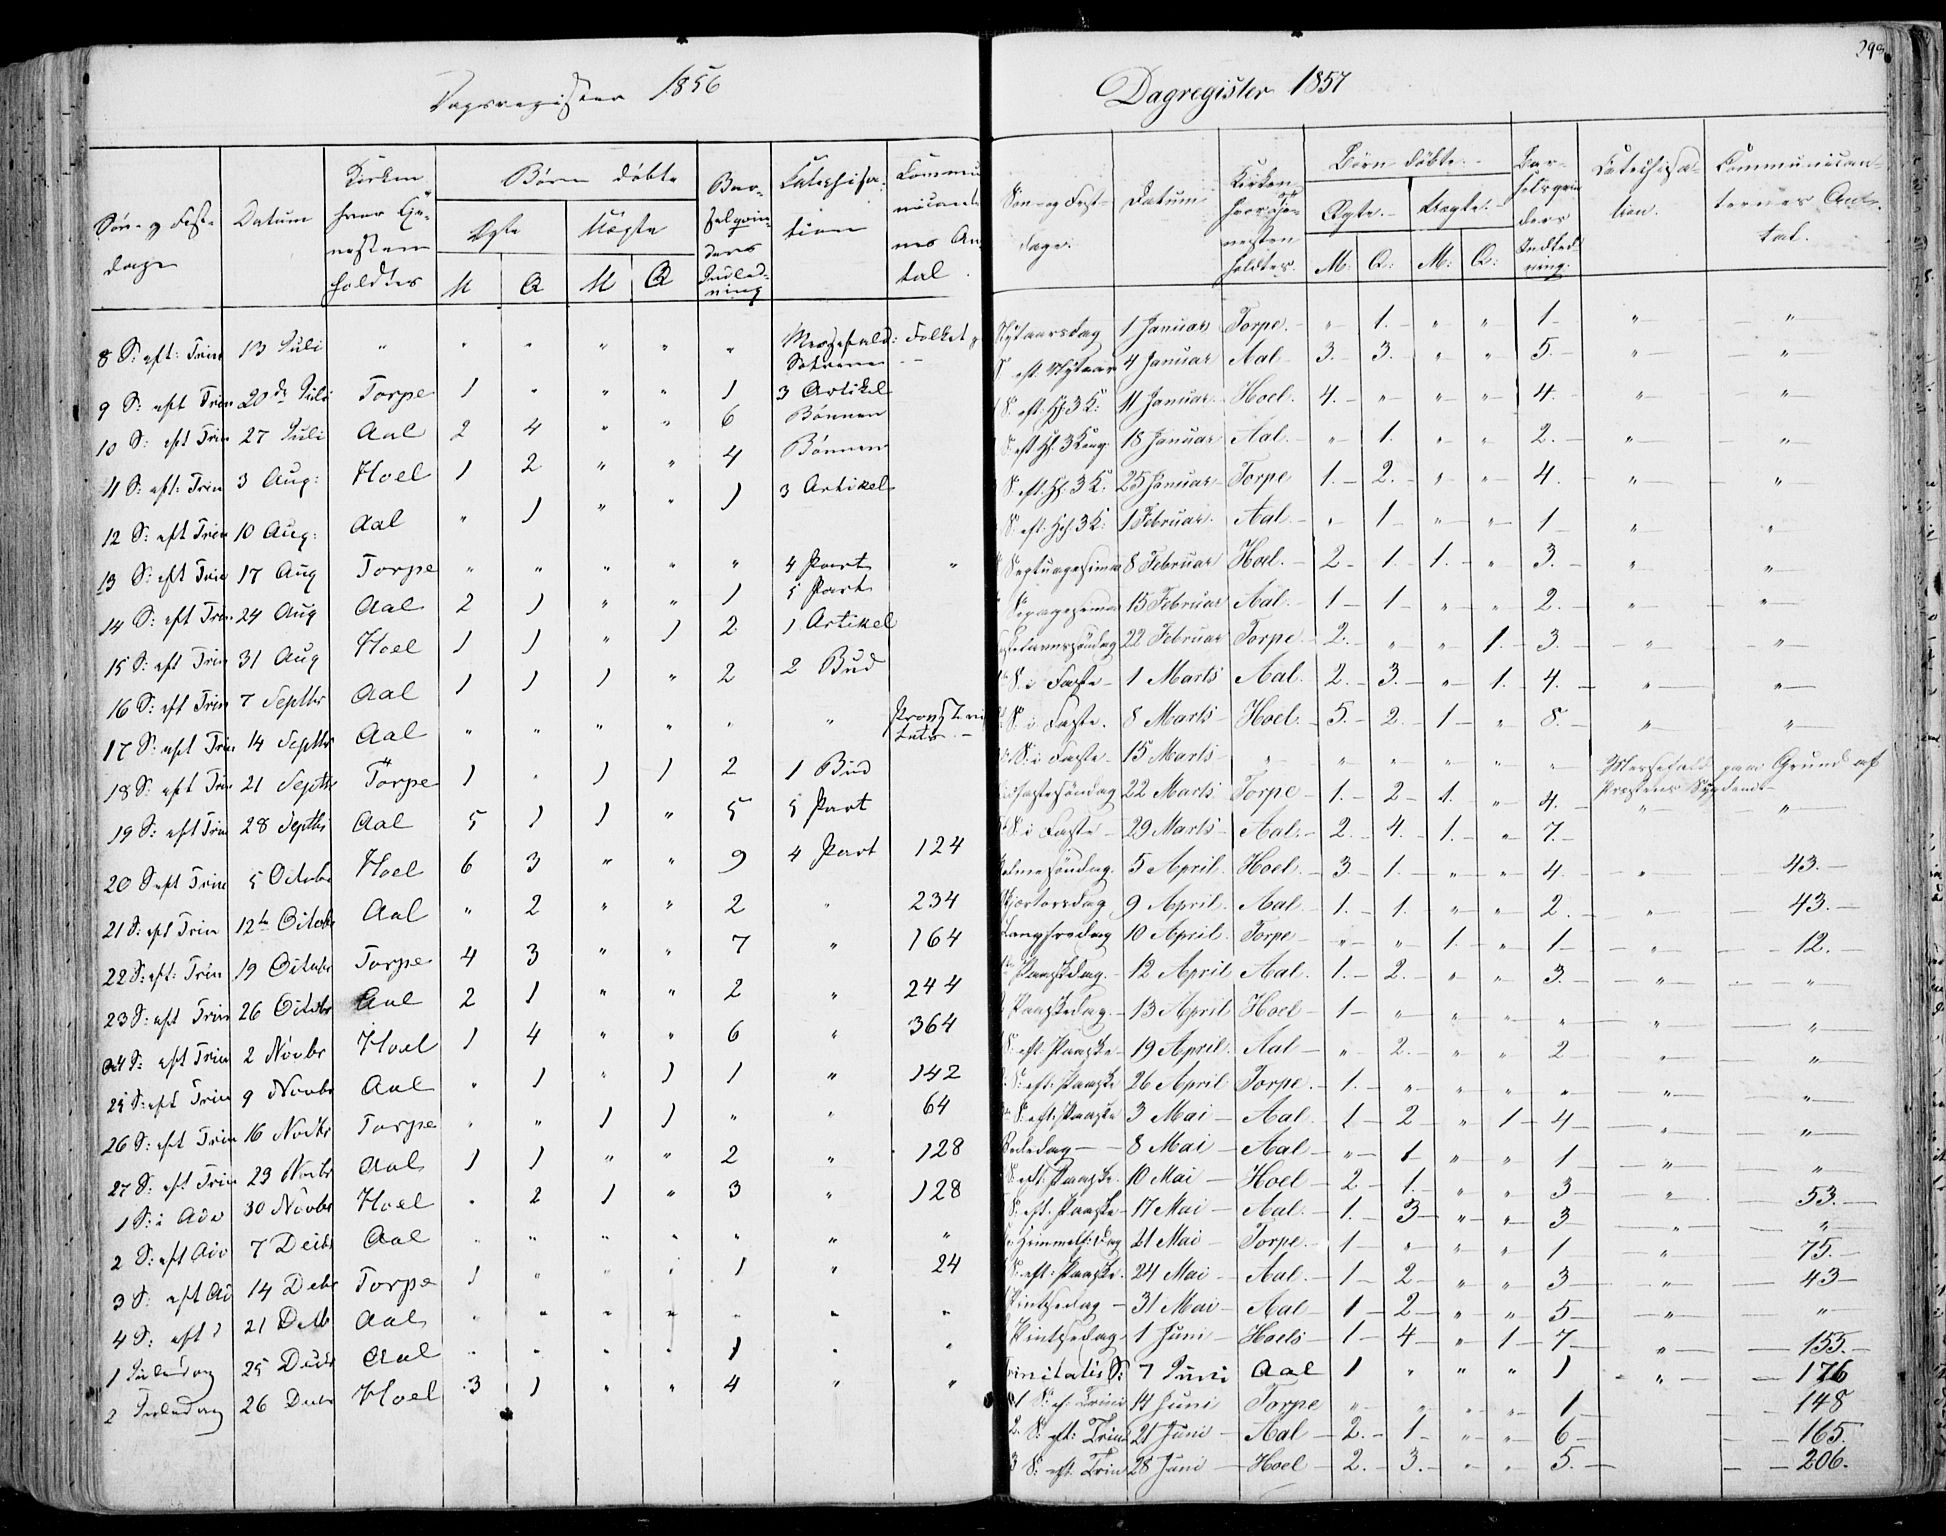 Dagsregister 1856
Søn- og Feste dage | Datum | Kirken hvor Tjenesten holdtes | Børn døbte | Ægte M Q | Uægte M Q | Barselqvinders Indledning | Cathechisation | Communicanternes Antal
8 S: eft: Trin 13 Juli " " " " " " Messefald: Folket
9 S: eft Trin 20de Juli Torpe 1 " " " 1 3 Artikel
10 S: eft Trin 27 Juli Aal 2 4 " " 6 Bønnen
11 S: eft: Trin 3 Aug: Hoel 1 2 " " 4 Bønnen
12 S: eft Trin 10 Aug: Aal " 1 " " 1 3 Artikel
13 S: eft Trin 17 Aug Torpe " " " " " 4 Part "
14 S: eft Trin 24 Aug Aal 2 1 " " 1 5 Part
15 S: eft Trin 31 Aug Hoel 1 1 " 1 2 1 Artikel
16 S: eft Trin 7 Septbr Aal 1 1 1 " 2 2 Bud
17 S: eft Trin 14 Septbr Aal " " " " " "
18 S: eft Trin 21 Septbr Torpe 1 " 1 1 2 1 Bud
19 S: eft Trin 28 Septbr Aal 5 1 1 " 5 5 Part
20 S eft Trin 5 Octobr Hoel 6 3 " " 9 4 Part 124
21 S: eft Trin 12te Octobr Aal " 2 " " 2 " 234
22 S: eft: Trin 19 Octobr Torpe 4 3 " " 7 " 164
23 S: eft Trin 26 Octobr Aal 2 1 " " 2 " 244
24 S: eft Trin 2 Novbr Hoel 1 4 " " 6 " 364
25 S: eft Trin 9 Novbr Aal " 1 " 1 1 " 142
26 S: eft Trin 16 Novbr Torpe " " 1 1 " " 64
27 S: eft Trin 23 Novbr Aal 1 1 " " 2 " 128
1 S: i Adv 30 Novbr Hoel " 2 1 " 3 " 128
2 S: eft Adv 7 Decbr Aal " " " " " " "
3 S: eft Ad 14 Debr Torpe 1 " " " 1 " 24
4 S: eft 21 Decb Aal " " " " " " "
1 Juledag 25 Decbr Aal " " " " 1 " "
2 Juledag 26 Decbr Hoel 3 1 " " 4 " "
Dagregister 1857
Søn- og Fest- dage. | Datum | Kirken, hvor Tjenesten holdtes. | Børn døbte. | Ægte. M: Q: | Uægte. M: Q: | Barselsqvinders Indledning. | Catechisation. | Communicanternes Antal.
Nytaarsdag 1 Januar Torpe. " 1. " " 1 " "
S eft. Nytaar 4 Januar Aal 3. 3. " " 5. " "
S. eft. H. 3 K: 11 Januar Hoel. 4. " " " 4. " "
S eft H. 3 Kong. 18 Januar Aal. " 1. " " 2. " "
S. eft. H. 3 K. 25 Januar Torpe 1. 2. " " 4. " "
S. eft. H. 3 K: 1 Februar. Aal. " 1 " " 1 " "
Septuagesima 8 Februar Hoel. 2 1. 1. " 3. " "
Sexagesima 15 Februar Aal. 1 1 " " 2. " "
Fastelavnssøndag 22 Februar Torpe. 2. " " 1. 3. " "
S. i Faste 1 Marts Aal. 2. 3. " 1. 4. " "
S. i Faste. 8 Marts Hoel. 5. 2. 1 " 8. " "
S. i Faste. 15 Marts " " " " " " Messefald paa Grund af Præstens Sygdom
Midfastesøndag 22 Marts Torpe 1. 2 1. " 4. " "
S. i Faste 29 Marts Aal. 2. 4. 1. " 7.
Palmesøndag. 5 April. Hoel 3. 1. " " 4. " 43.
Skjærtorsdag 9 April. Aal. 1. 1. " " 2. " 43.
Langfredag 10 April. Torpe " " 1. " 1 " 12.
Paaskedag. 12 April Aal. 1. 2. " " 3. " "
2 Paaskedag. 13 April Hoel 1 " " " " " "
S. eft. Paaske 19 April. Aal " 2. " " 2 " "
S: eft: Paaske 26 April Torpe. 1. " " " " " "
S: eft: Paaske 3 Mai Aal. 1 2 " 1 4 " "
Bededag 8 Mai Aal " 1 " " 1 " "
S. eft. Paaske. 10 Mai Hoel 2 1. " " 3 " 53.
S. eft. Paaske 17 Mai Aal. 1. 3 " " 3 " "
Himmelf: dag 21 Mai Torpe. 1 " " " 1 " 75.
S. eft. Paaske. 24 Mai Aal. 1 2 " " 3 " 43
Pintsedag 31 Mai Aal 1 2 " " 5 " "
Pintsedag 1 Juni Hoels 1 4 " 1 7 " 155.
Trinitatis S: 7 Juni Aal 1 " " " 1 " 176
1 S: ef: Trini 14 Juni Torpe " " " " 1 148
2. S: eft: Trin 21 Juni Aal 2. 1 " " 6 165.
3 S: eft. Trin 28 Juni Hoel 2. 3. " " 5. 206.